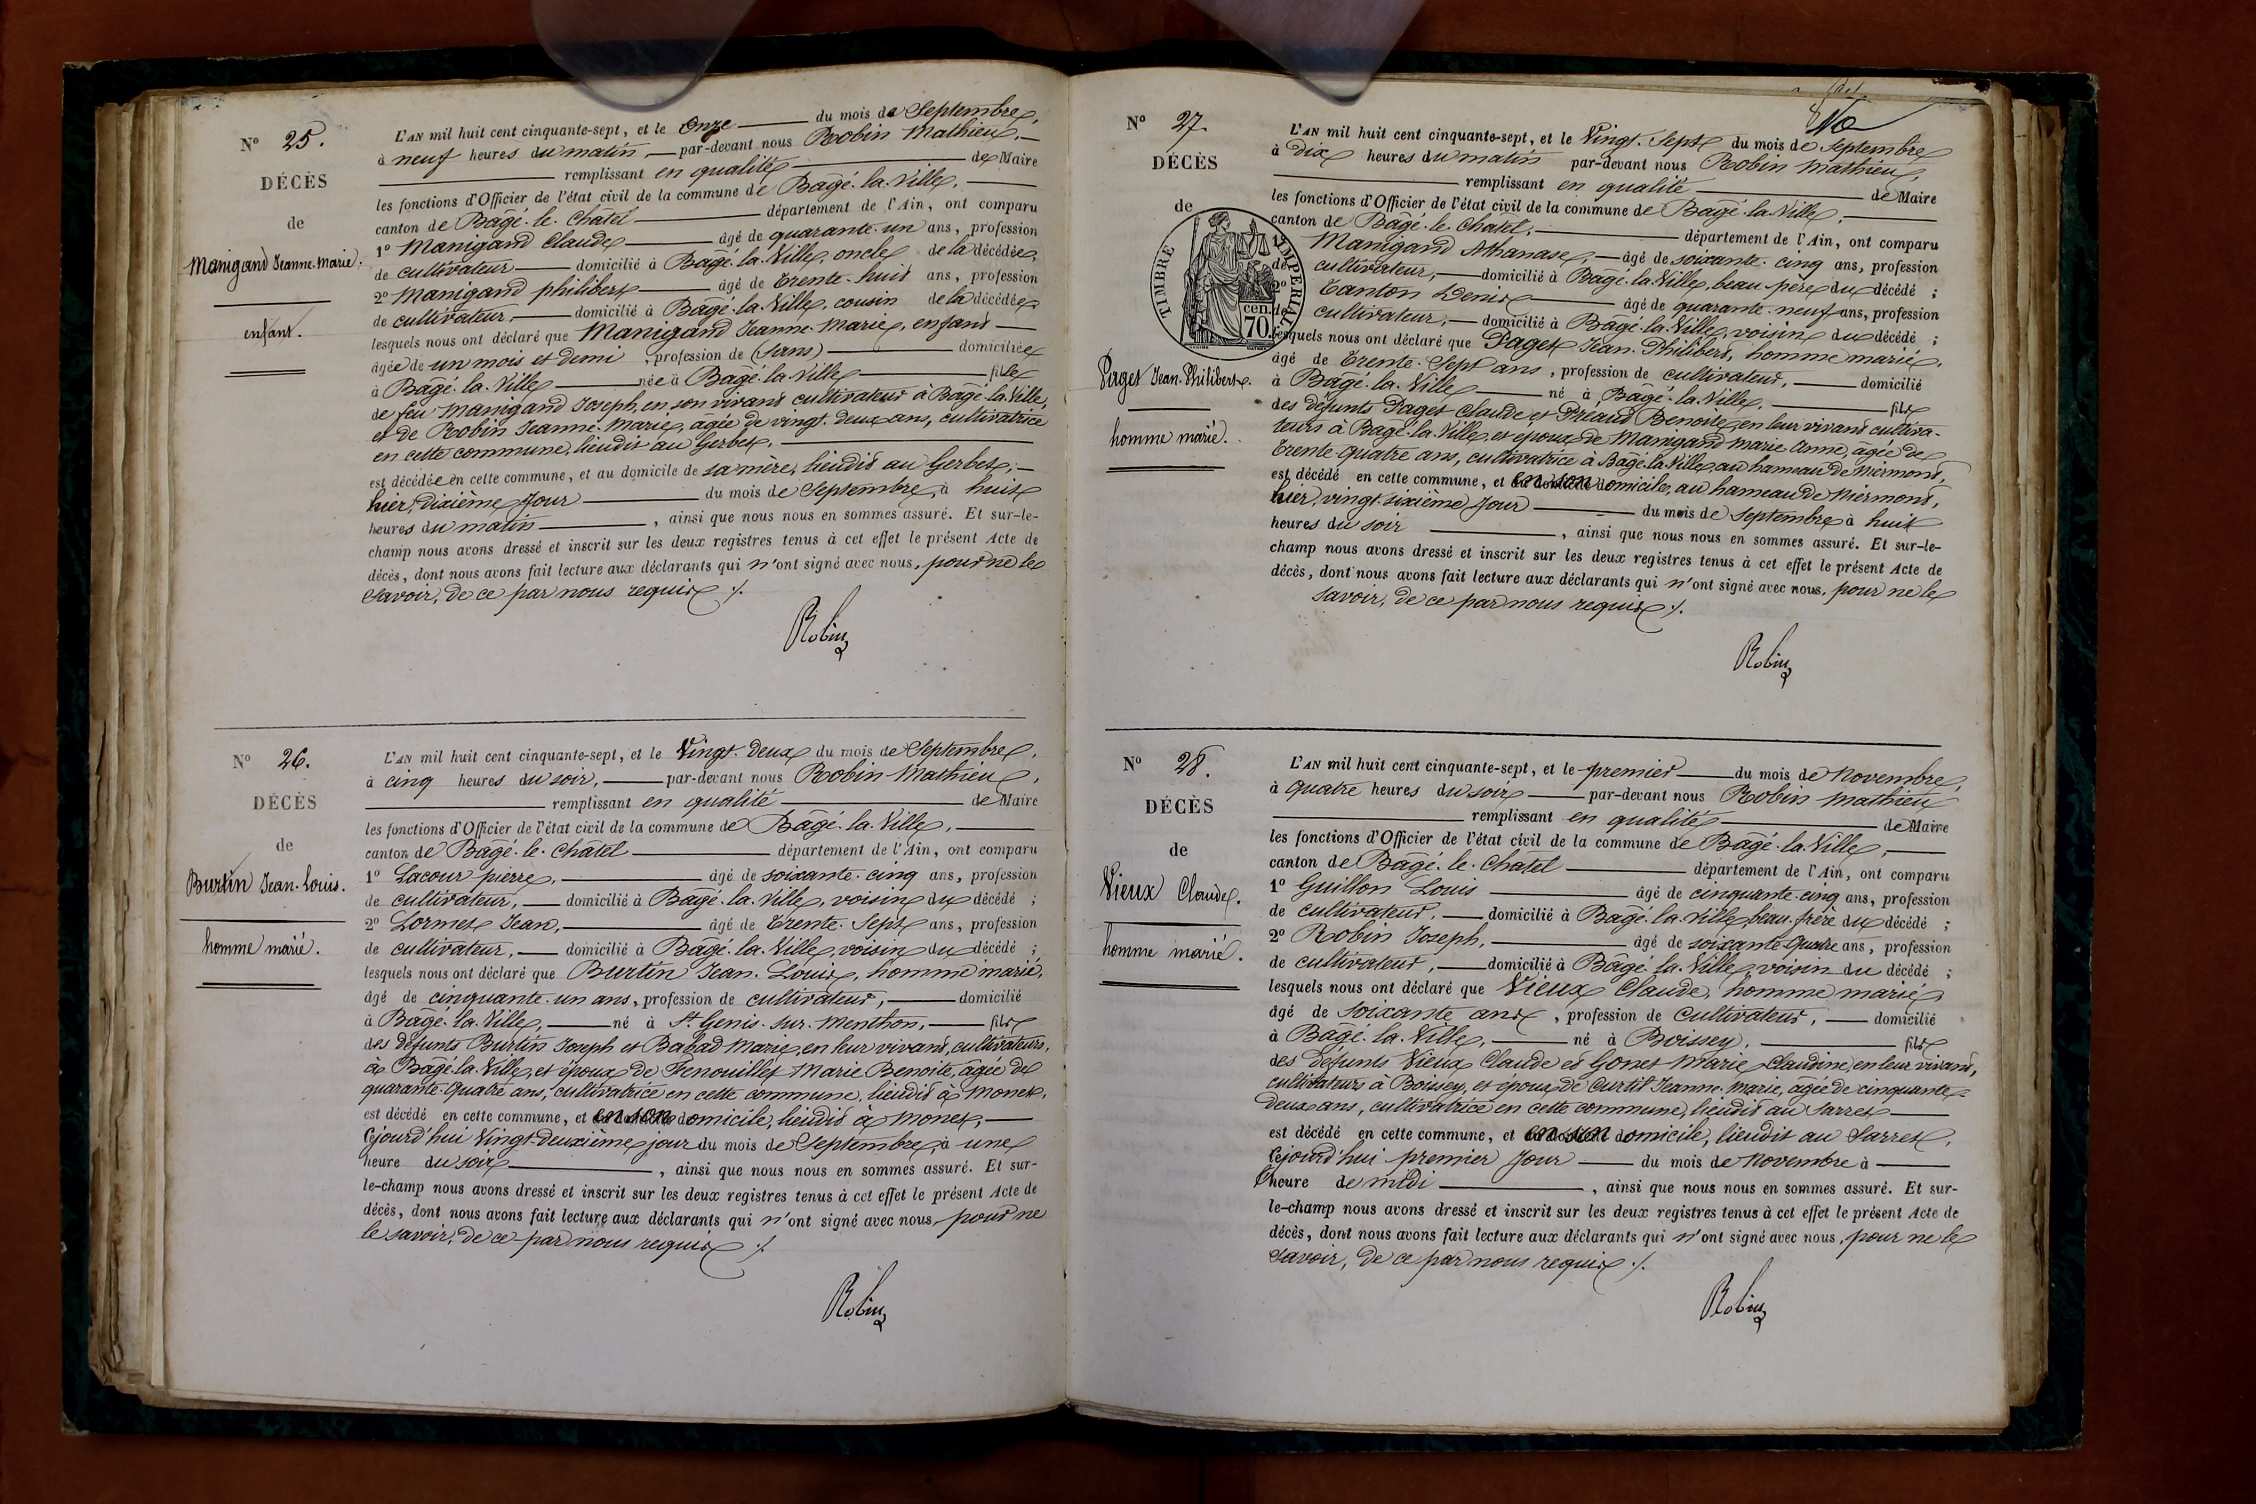 N° 25.
DÉCÈS
de
Manigand Jeanne-Marie.
enfant.
L'AN mil huit cent cinquante-sept, et le Onze du mois de Septembre,
à neuf heures du matin par-devant nous Robin Mathieu,
remplissant en qualité de Maire
les fonctions d'Officier de l'état civil de la commune de Bâgé-la-Ville,
canton de Bâgé-le-Châtel département de l'Ain, ont comparu
1° Manigand Claude âgé de quarante-un ans, profession
de cultivateur domicilié à Bâgé-la-Ville, oncle de la décédée,
2° Manigand philibert âgé de trente-huit ans, profession
de cultivateur, domicilié à Bâgé-la-Ville, cousin de la décédée
lesquels nous ont déclaré que Manigand Jeanne-Marie, enfant
âgée de un mois et demi, profession de (sans) domiciliée
à Bâgé-la-Ville née à Bâgé-la-Ville fille
de feu Manigand Joseph, en son vivant cultivateur à Bâgé-la-Ville,
et de Robin Jeanne-Marie, âgée de vingt-deux ans, cultivatrice
en cette commune, lieudit au Gerbet,
est décédée en cette commune, et au domicile de sa mère, lieudit au Gerbet,
hier, dixième jour du mois de Septembre, à huit
heures du matin, ainsi que nous nous en sommes assuré. Et sur-le-
champ nous avons dressé et inscrit sur les deux registres tenus à cet effet le présent Acte de
décès, dont nous avons fait lecture aux déclarants qui n'ont signé avec nous, pour ne le
savoir, de ce par nous requis ./.
Robin
N° 26.
DÉCÈS
de
Burtin Jean-Louis.
homme marié.
L'AN mil huit cent cinquante-sept, et le Vingt-deux du mois de Septembre,
à cinq heures du soir, par-devant nous Robin Mathieu,
remplissant en qualité de Maire
les fonctions d'Officier de l'état civil de la commune de Bâgé-la-Ville,
canton de Bâgé-le-Châtel département de l'Ain, ont comparu
1° Lacour pierre, âgé de soixante-cinq ans, profession
de cultivateur, domicilié à Bâgé-la-Ville, voisin du décédé ;
2° Lormet Jean, âgé de trente-sept ans, profession
de cultivateur, domicilié à Bâgé-la-Ville, voisin du décédé ;
lesquels nous ont déclaré que Burtin Jean-Louis, homme marié,
âgé de cinquante-un ans, profession de cultivateur, domicilié
à Bâgé-la-Ville, né à St Genis-sur-Menthon, fils
des défunts Burtin Joseph et Babad Marie, en leur vivant, cultivateurs,
à Bâgé-la-Ville, et époux de Fenouillet Marie Benoite, âgée de
quarante-quatre ans, cultivatrice en cette commune, lieudit à Monet,
est décédé en cette commune, et en son domicile, lieudit à Monet,
Cejourd'hui Vingt-deuxième jour du mois de Septembre, à une
heure du soir, ainsi que nous nous en sommes assuré. Et sur-
le-champ nous avons dressé et inscrit sur les deux registres tenus à cet effet le présent Acte de
décès, dont nous avons fait lecture aux déclarants qui n'ont signé avec nous, pour ne
le savoir, de ce par nous requis ./.
Robin
N° 27.
DÉCÈS
de
TIMBRE IMPERIAL
70 cen.
Paget Jean-Philibert.
homme marié.
L'AN mil huit cent cinquante-sept, et le Vingt-Sept du mois de Septembre
à Dix heures du matin par-devant nous Robin Mathieu,
remplissant en qualité de Maire
les fonctions d'Officier de l'état civil de la commune de Bâgé-la-Ville,
canton de Bâgé-le-Châtel, département de l'Ain, ont comparu
1° Manigand Athanase, âgé de soixante-cinq ans, profession
de cultivateur, domicilié à Bâgé-la-Ville, beau-père du décédé ;
2° Canton Denis âgé de quarante-neuf ans, profession
de cultivateur, domicilié à Bâgé-la-Ville, voisin du décédé ;
lesquels nous ont déclaré que Paget Jean-Philibert, homme marié,
âgé de trente-sept ans, profession de cultivateur, domicilié
à Bâgé-la-Ville né à Bâgé-la-Ville, fils
des défunts Paget Claude et Préaud Benoite, en leur vivant cultiva-
teurs à Bâgé-la-Ville, et époux de Manigand Marie Anne, âgée de
trente-quatre ans, cultivatrice à Bâgé-la-Ville, au hameau de Mermont,
est décédé en cette commune, et en son domicile, au hameau de Mermont,
hier, vingt-sixième jour du mois de Septembre à huit
heures du soir, ainsi que nous nous en sommes assuré. Et sur-le-
champ nous avons dressé et inscrit sur les deux registres tenus à cet effet le présent Acte de
décès, dont nous avons fait lecture aux déclarants qui n'ont signé avec nous, pour ne le
savoir, de ce par nous requis ./.
Robin
N° 28.
DÉCÈS
de
Vieux Claude.
homme marié.
L'AN mil huit cent cinquante-sept, et le premier du mois de Novembre,
à quatre heures du soir par-devant nous Robin Mathieu
remplissant en qualité de Maire
les fonctions d'Officier de l'état civil de la commune de Bâgé-la-Ville,
canton de Bâgé-le-Châtel département de l'Ain, ont comparu
1° Guillon Louis âgé de cinquante-cinq ans, profession
de cultivateur, domicilié à Bâgé-la-Ville, beau-frère du décédé ;
2° Robin Joseph, âgé de soixante-quatre ans, profession
de cultivateur, domicilié à Bâgé-la-Ville, voisin du décédé ;
lesquels nous ont déclaré que Vieux Claude, homme marié,
âgé de soixante ans, profession de cultivateur, domicilié
à Bâgé-la-Ville, né à Boissey, fils
des défunts Vieux Claude et Gonet Marie Claudine, en leur vivant,
cultivateurs à Boissey, et époux de Curtil Jeanne-Marie, âgée de cinquante-
deux ans, cultivatrice en cette commune, lieudit au Sarret
est décédé en cette commune, et en son domicile, lieudit au Sarret,
Cejourd'hui premier jour du mois de Novembre à
l'heure de midi, ainsi que nous nous en sommes assuré. Et sur-
le-champ nous avons dressé et inscrit sur les deux registres tenus à cet effet le présent Acte de
décès, dont nous avons fait lecture aux déclarants qui n'ont signé avec nous, pour ne le
savoir, de ce par nous requis ./.
Robin